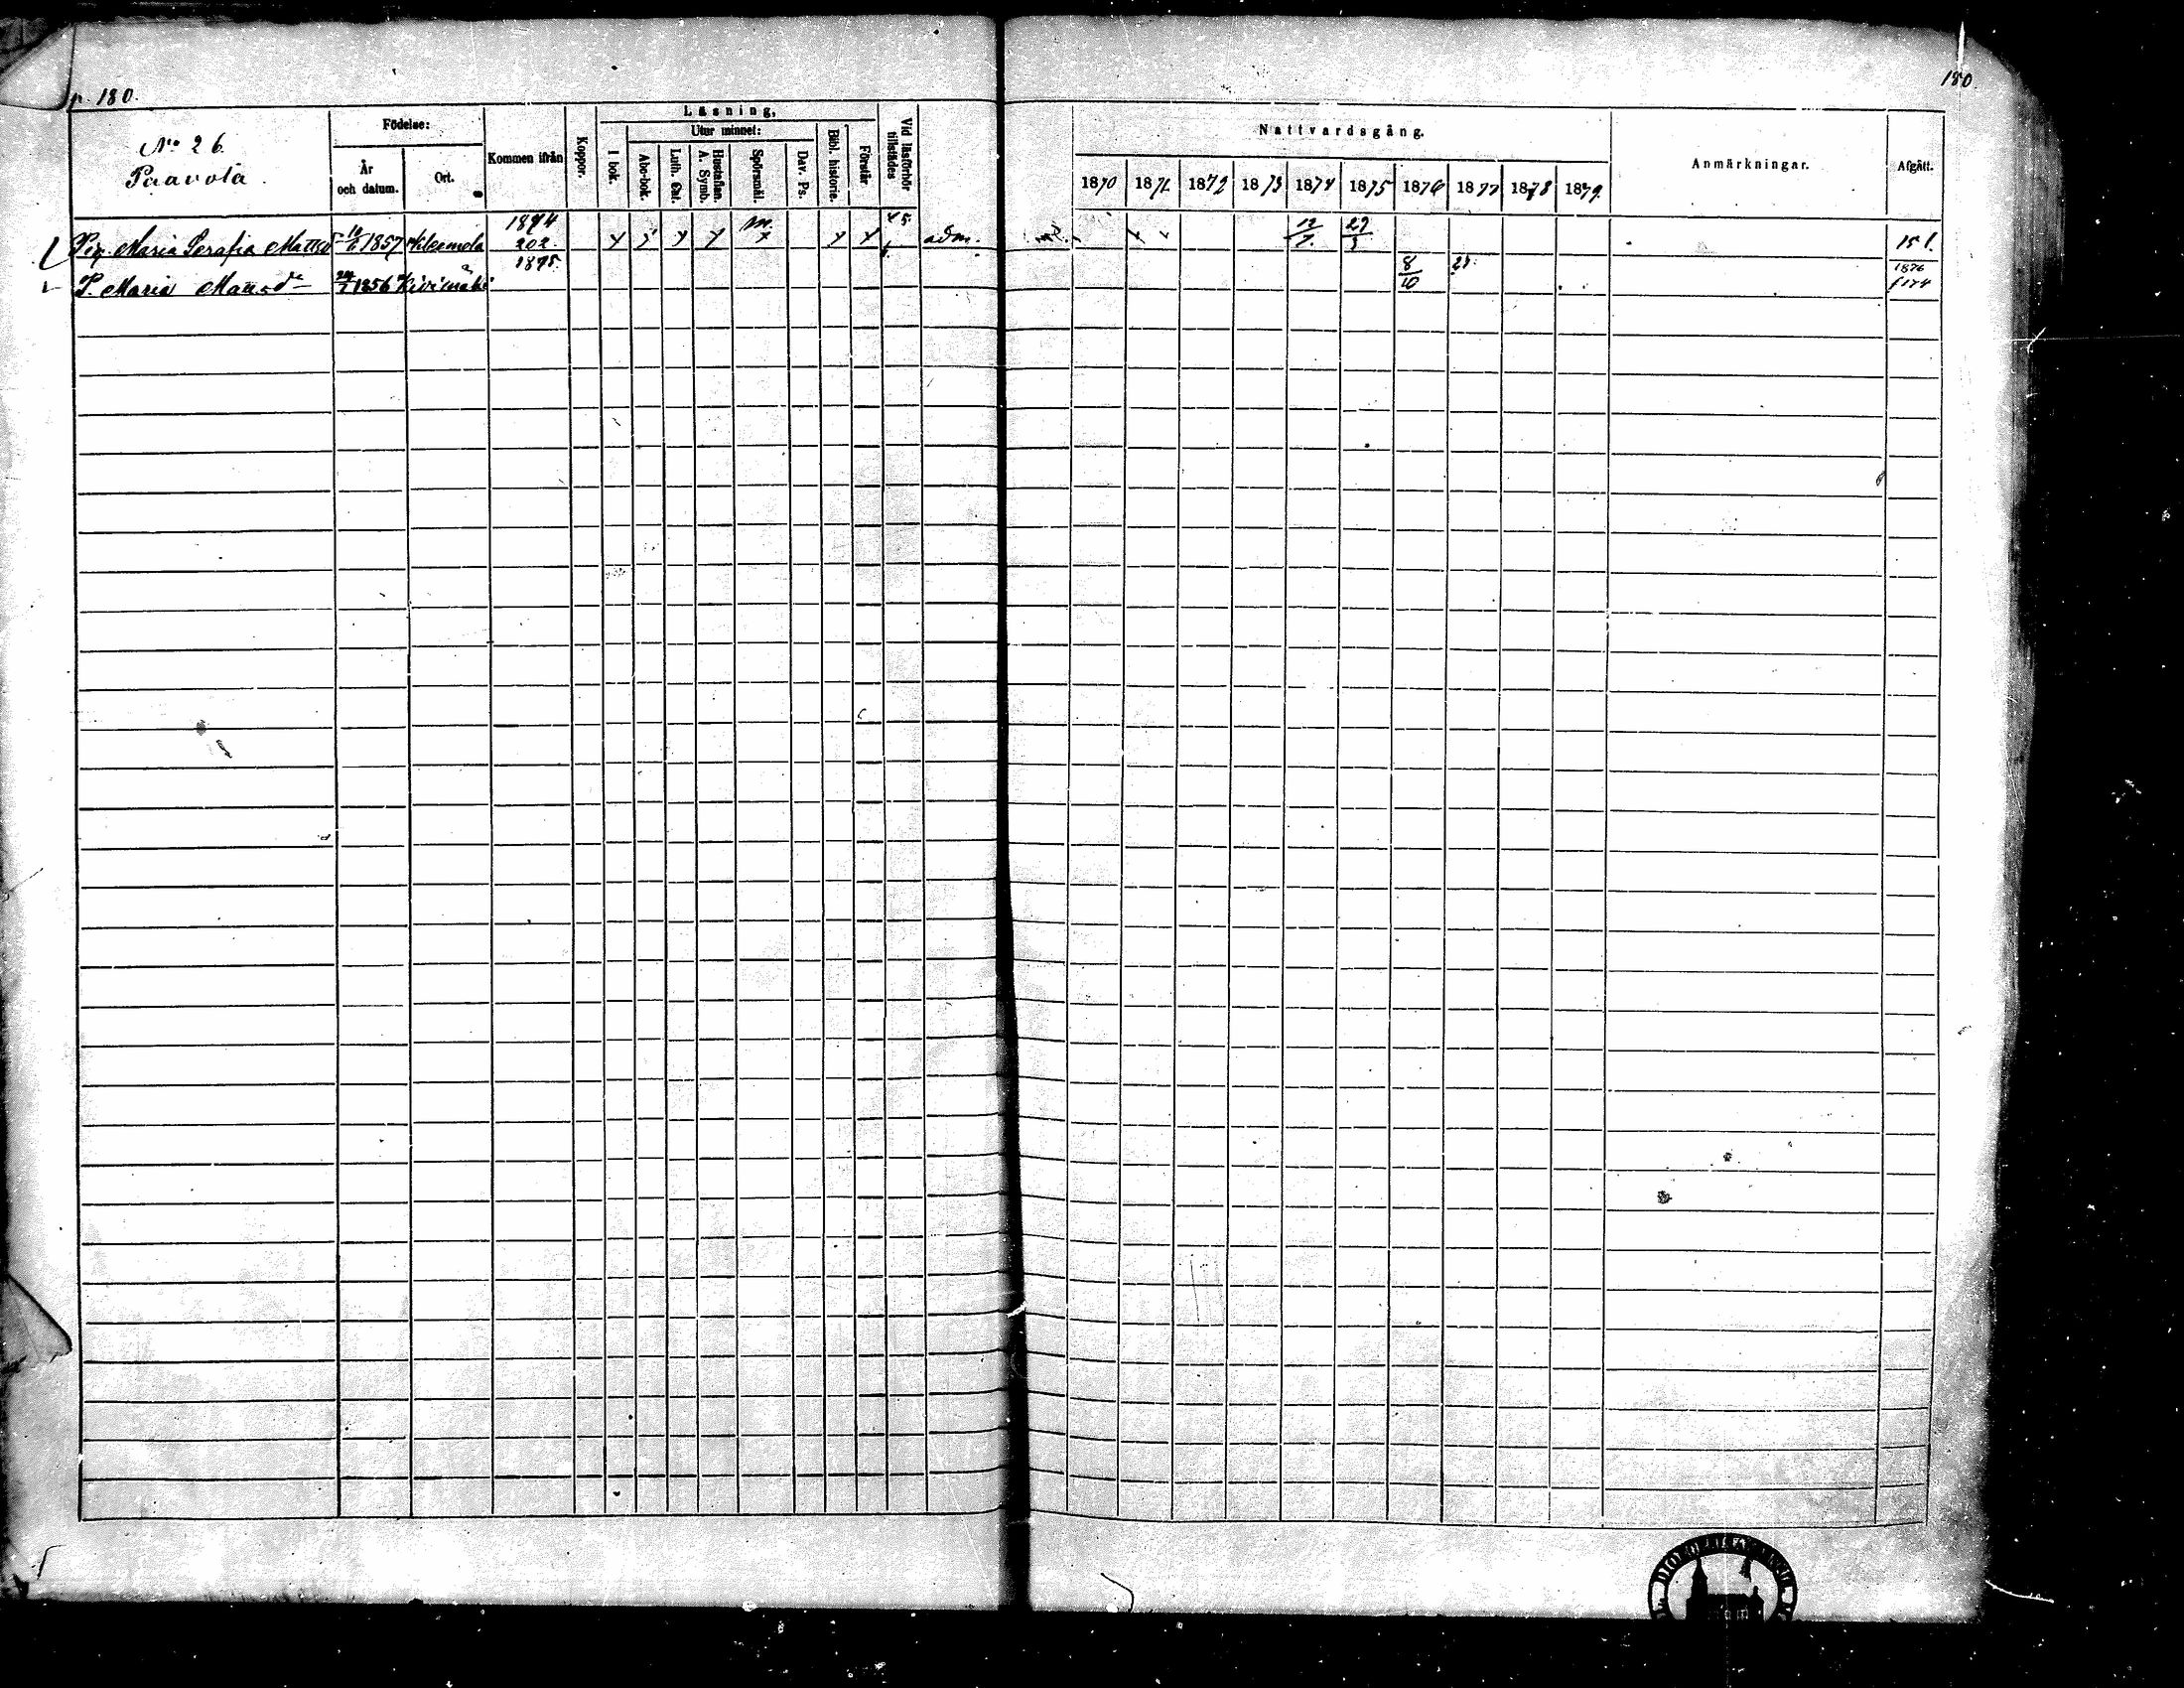 p. 180.
180.
No 26.
Paavola.
Födelse:
År och datum.
Ort.
Kommen ifrån
Koppor.
Läsning,
I bok.
Utur minnet:
Abc-bok.
Luth. Cat.
Hustaflan. A. Symb.
Spörsmål.
Dav. Ps.
Bibl. historie.
Förstår
Vid läsförhör tillstädes
Nattvardsgång.
1870 1871 1872 1873 1874 1875 1876 1877 1878 1879.
Anmärkningar.
Afgått.
Pig. Maria Serafia Mattsd 1857 1874 202. adm. 12/7 151.
P. Maria Mattsd 1856 Kivimäki 1875. 8/10 1876